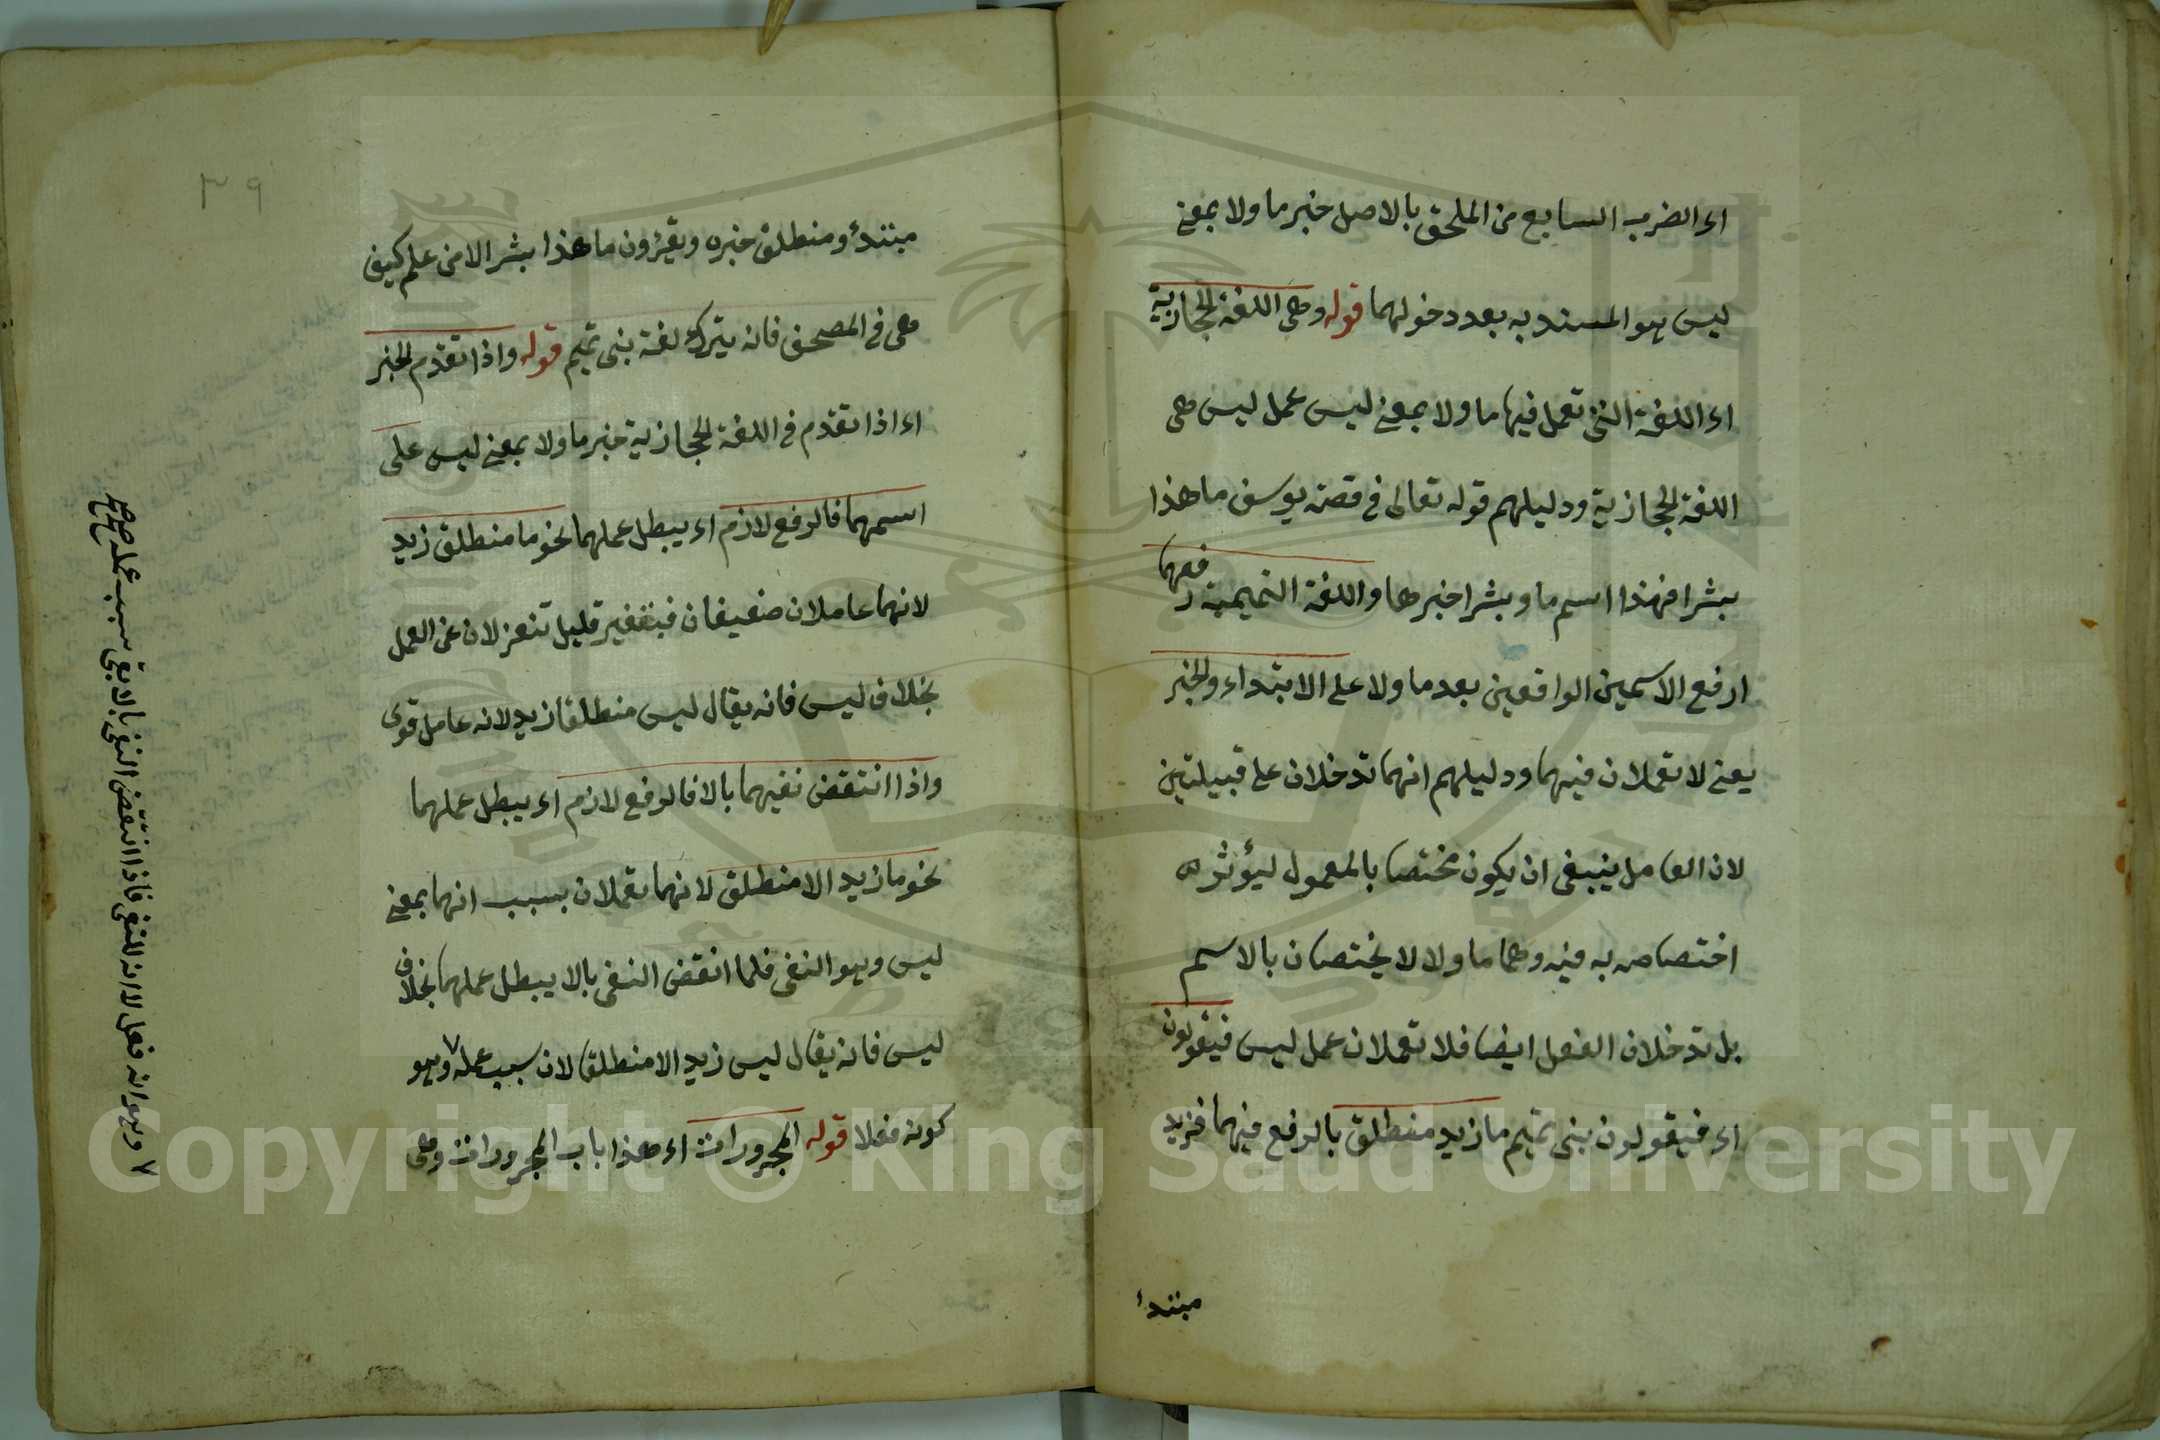 اى الضرب السابع من الملحق بالاصل خبر ما ولا بمعنى
ليس هو المسند به بعد دخولهما قوله وهى اللغة الحجازية
اى اللغة التى تعمل فيها ما ولا بمعنى ليس عمل ليس هى
اللغة الحجازية ودليلهم قوله تعالى فى قصة يوسف ما هذا
بشرا فهذا اسم ما وبشرا خبرها واللغة التميمية رفعهما
ارفع الاسمين الواقعين بعد ما ولا على الابتداء والخبر
يعنى لا تعملان فيهما ودليلهم انهما تدخلان على قبيلتين
لان العامل ينبغى ان يكون مختصا بالمعمول ليؤثر
اختصاص به فيه وهما ما ولا لا يختصان بالاسم
بل تدخلان الفعل ايضا فلا تعملان عمل ليس فيقولون
اى فيقولون بنى تميم ما زيد منطلق بالرفع فيهما فزيد
مبتدأ
٣٩
مبتدأ ومنطلق خبره ويقرؤن ما هذا بشر الا من علم كيف
هى فى المصحف فانه يترك لغة بنى تميم قوله واذا تقدم الخبر
اى اذا تقدم فى اللغة الحجازية خبر ما ولا بمعنى ليس على
اسمهما فالرفع لازم اى يبطل عملهما نحو ما منطلق زيد
لانهما عاملان ضعيفان فبتغير قليل تنعزلان عن العمل
بخلاف ليس فانه يقال ليس منطلقا زيد لانه عامل قوى
واذا انتقض نفيهما بالا فالرفع لازم اى يبطل عملهما
نحو ما زيد الا منطلق لانهما تعملان بسبب انهما بمعنى
ليس وهو النفى فلما انقض النفى بالا يبطل عملهما بخلاف
ليس فانه يقال ليس زيد الا منطلقا لان سبب عمله ٧ وهو
كونه فعلا قوله المجرورات اى هذا باب المجرورات وهى
٧ وهو انه فعل لا انه للنفى فاذا انتقض النفى بالا بقى سبب عمله صح صح
Copyright © King Saud University